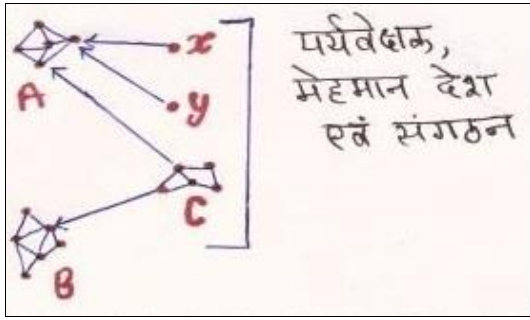 A
x
y
C
B
पर्यवेक्षक,
मेहमान देश
एवं संगठन